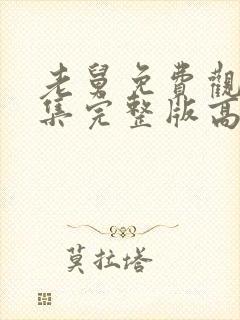 老舅免費觀
集完整版高
莫拉塔